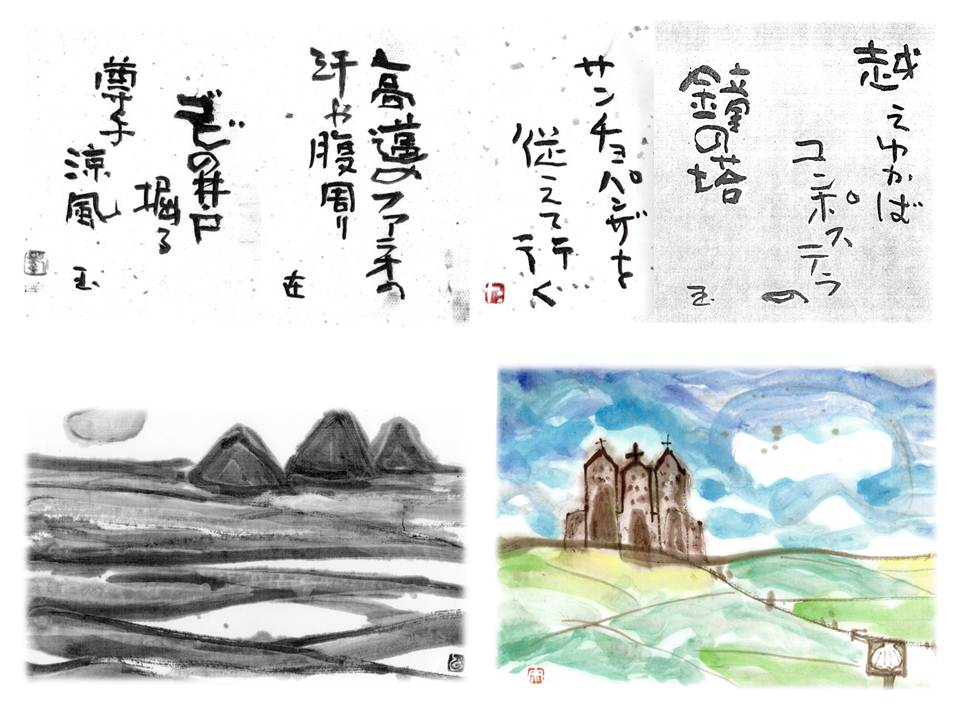 越えゆかば
コンポステラの
鐘の塔
玉
サンチョパンザを
従えて
高邁のファラオの
汗や腹周り
在
ゴビの井戸
掘る
涼風
玉